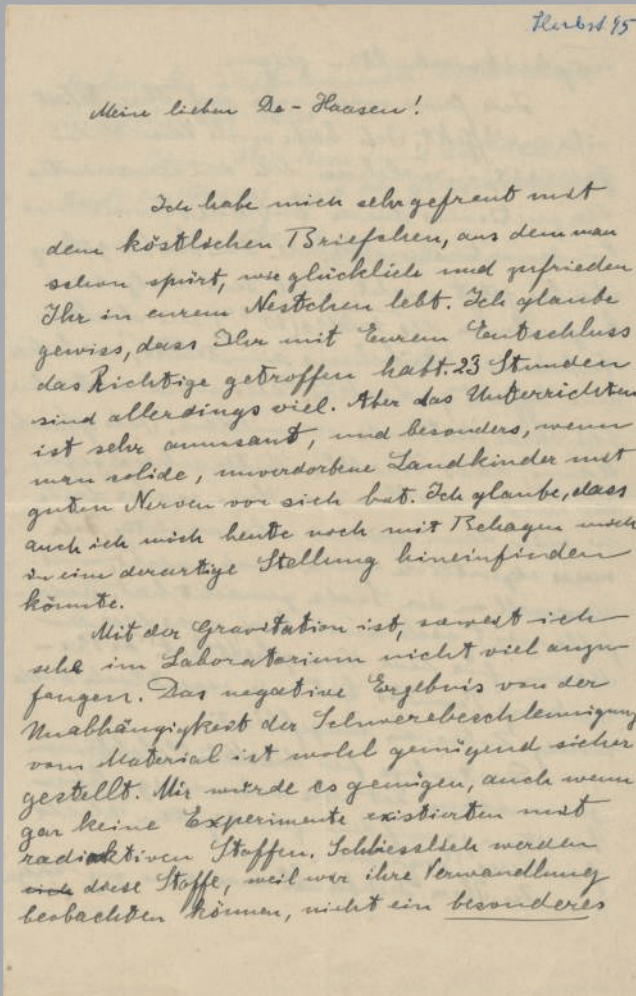 Herbst 95
Meine lieben De-Haasen!
Ich habe mich sehr gefreut mit
dem köstlichen Briefchen, aus dem man
schon spürt, wie glücklich und zufrieden
Ihr in eurem Nestchen lebt. Ich glaube
gewiss, dass Ihr mit Eurem Entschluss
das Richtige getroffen habt. 23 Stunden
sind allerdings viel. Aber das Unterrichten
ist sehr amusant, und besonders, wenn
man solide, unverdorbene Landkinder mit
guten Nerven vor sich hat. Ich glaube, dass
auch ich mich heute noch mit Behagen
in eine derartige Stellung hineinfinden
könnte.
Mit der Gravitation ist, soweit ich
sehe im Laboratorium nicht viel anzu-
fangen. Das negative Ergebnis von der
Unabhängigkeit der Schwerebeschleunigung
vom Material ist wohl genügend sicher
gestellt. Mir würde es genügen, auch wenn
gar keine Experimente existierten mit
radioaktiven Stoffen. Schliesslich werden
diese Stoffe, weil wir ihre Verwandlung
beobachten können, nicht ein besonderes